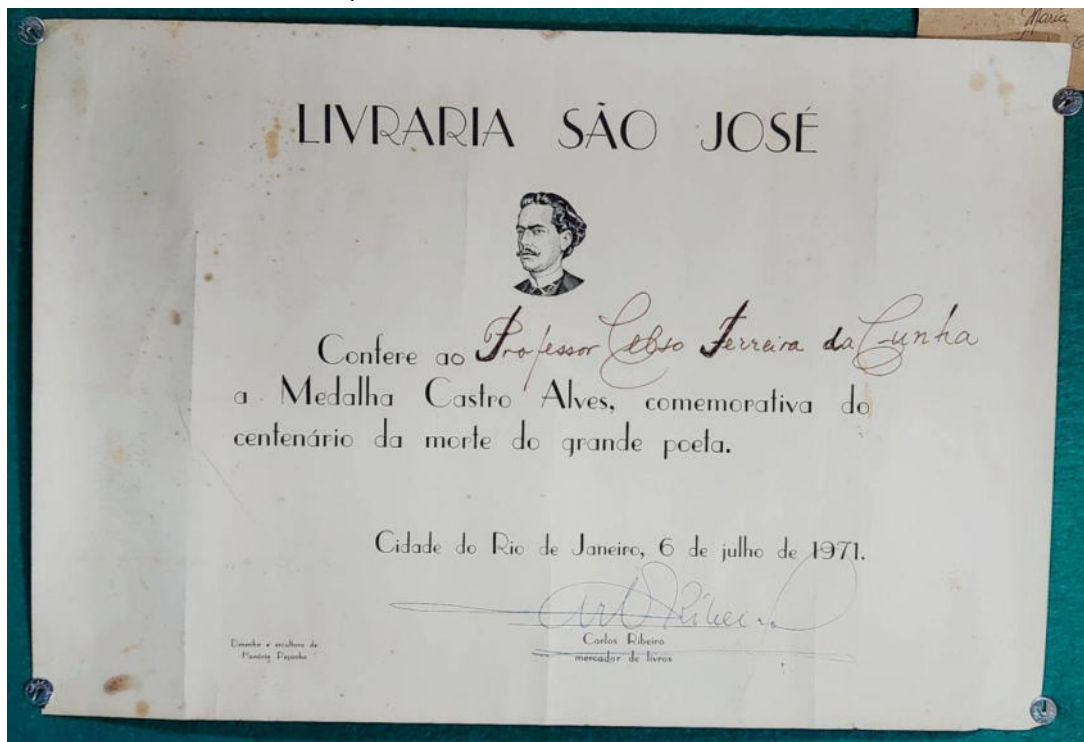 Maria
LIVRARIA SÃO JOSÉ
Confere ao Professor Celso Ferreira da Cunha
a Medalha Castro Alves, comemorativa do
centenário da morte do grande poeta.
Cidade do Rio de Janeiro, 6 de julho de 1971.
Carlos Ribeiro
mercador de livros
Desenho e escultura de
Honório Peçanha